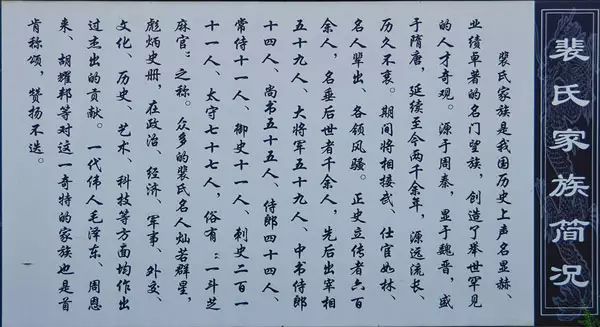 裴氏家族简况
裴氏家族是我国历史上声名显赫、
业绩卓著的名门望族，创造了举世罕见
的人才奇观。源于周秦，显于魏晋，盛
于隋唐，延续至今两千余年，源远流长、
历久不衰。期间将相接武、仕宦如林、
名人辈出、各领风骚。正史立传者六百
余人，名垂后世者千余人，先后出宰相
五十九人、大将军五十九人、中书侍郎
十四人、尚书五十五人、侍郎四十四人、
常侍十一人、御史十一人、刺史二百一
十一人、太守七十七人，俗有：“一斗芝
麻官”之称。众多的裴氏名人灿若群星，
彪炳史册，在政治、经济、军事、外交、
文化、历史、艺术、科技等方面均作出
过杰出的贡献。一代伟人毛泽东、周恩
来、胡耀邦等对这一奇特的家族也是首
肯称颂，赞扬不迭。